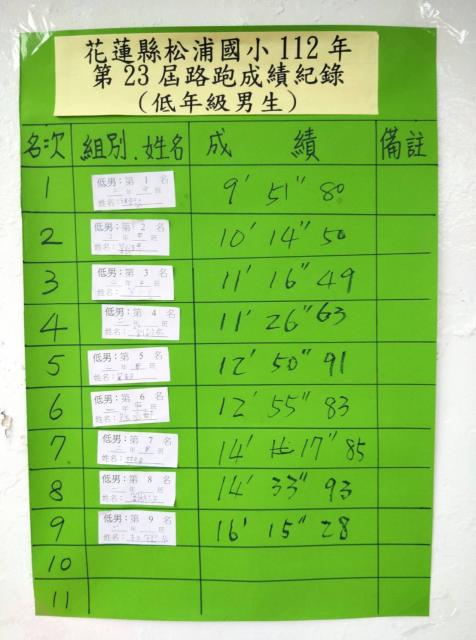 花蓮縣松浦國小112年
第23屆路跑成績紀錄
(低年級男生)
名次 組別.姓名 成績 備註
1 低男:第1名 年 班 姓名: 9' 51" 80
2 低男:第2名 年 班 姓名: 10' 14" 50
3 低男:第3名 年 班 姓名: 11' 16" 49
4 低男:第4名 年 班 姓名: 11' 26" 63
5 低男:第5名 年 班 姓名: 12' 50" 91
6 低男:第6名 年 班 姓名: 12' 55" 83
7 低男:第7名 年 班 姓名: 14' 17" 85
8 低男:第8名 年 班 姓名: 14' 33" 93
9 低男:第9名 年 班 姓名: 16' 15" 28
10
11